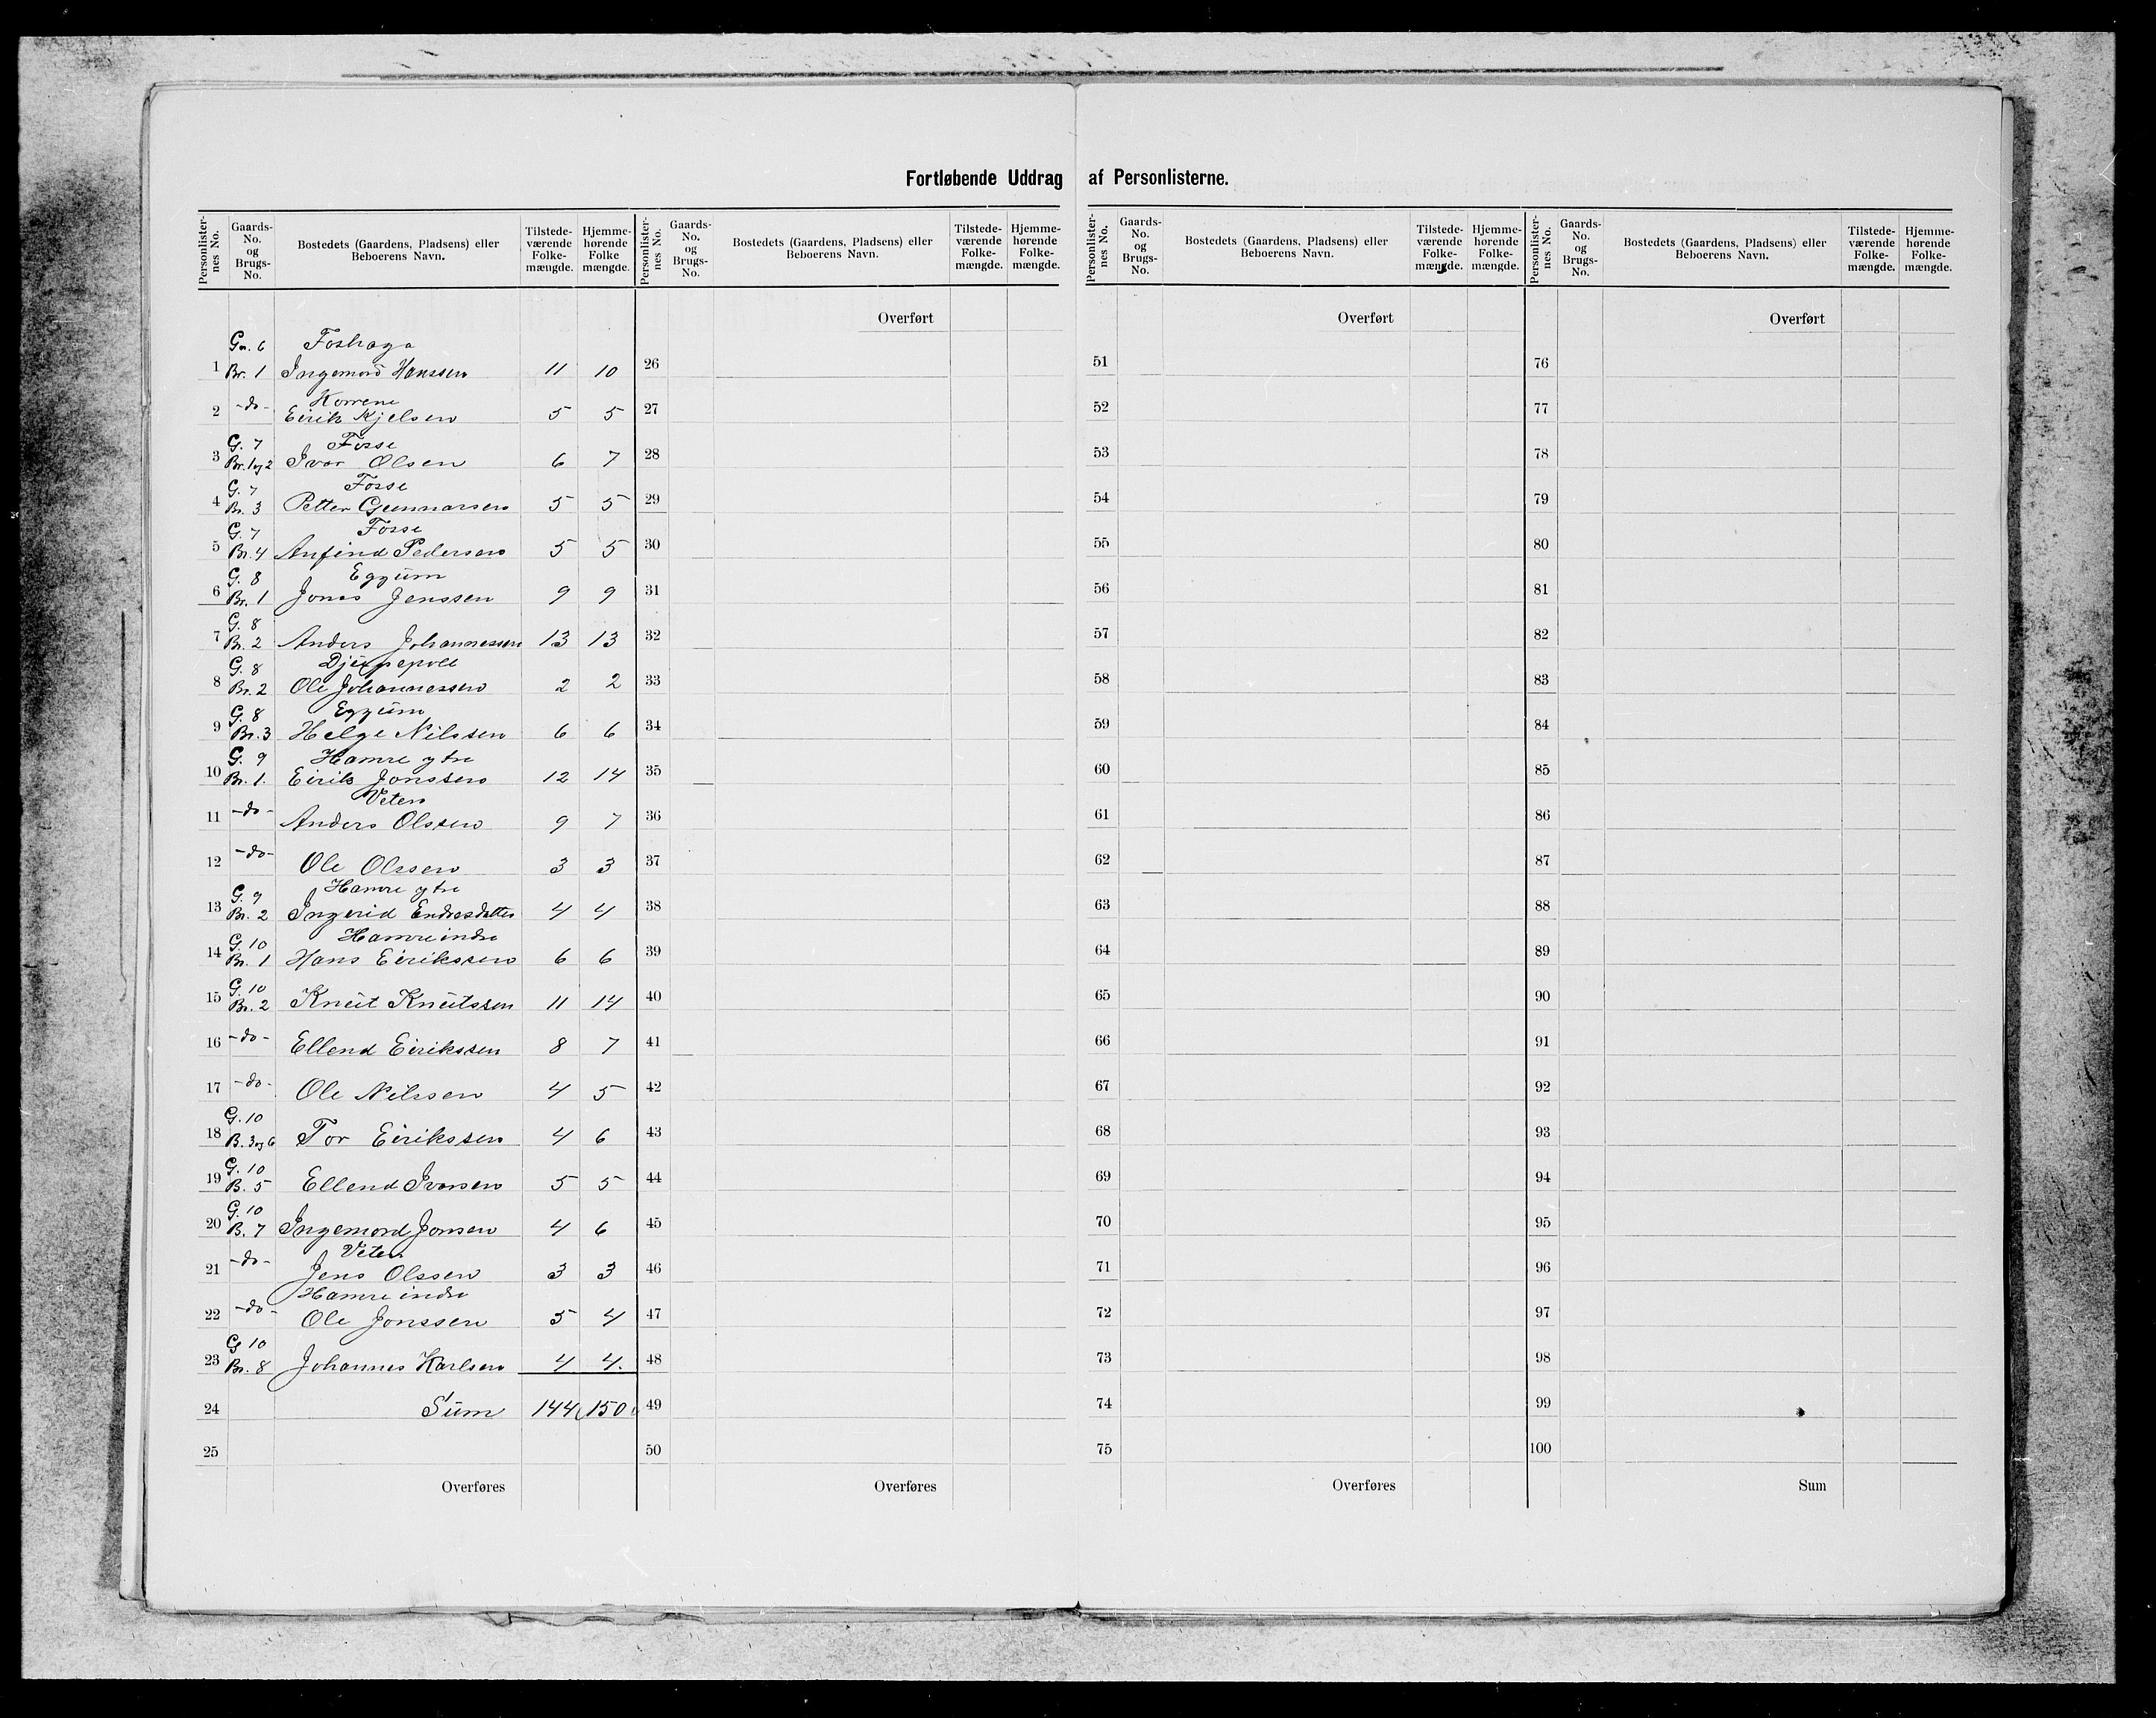 Fortløbende Uddrag af Personlisterne.
Personlister-nes No. Gaards-No. og Brugs-No. Bostedets (Gaardens, Pladsens) eller Beboerens Navn. Tilstede-værende Folke-mængde. Hjemme-hørende Folke mængde.
Personlister-nes No. Gaards-No. og Brugs-No. Bostedets (Gaardens, Pladsens) eller Beboerens Navn. Tilstede-værende Folke-mængde. Hjemme-hørende Folke-mængde.
Personlister-nes No. Gaards-No. og Brugs-No. Bostedets (Gaardens, Pladsens) eller Beboerens Navn. Tilstede-værende Folke-mængde. Hjemme-hørende Folke-mængde.
Personlister-nes No. Gaards-No. og Brugs-No. Bostedets (Gaardens, Pladsens) eller Beboerens Navn. Tilstede-værende Folke-mængde. Hjemme-hørende Folke-mængde.
Ga. 6 Foshaga
1 Br. 1 Ingemord Hanssen 11 10
Korrene
2 -do- Eirik Kjelsen 5 5
G. 7 Fosse
3 Br. 1 og 2 Ivar Olsen 6 7
G. 7 Fosse
4 Br. 3 Petter Gunnarsen 5 5
G. 7 Fosse
5 Br. 4 Anfind Pedersen 5 5
G. 8 Eggum
6 Br. 1 Jonas Jenssen 9 9
G. 8
7 Br. 2 Anders Johannessen 13 13
G. 8 Djupepoll
8 Br. 2 Ole Johannessen 2 2
G. 8 Eggum
9 Br. 3 Helge Nilssen 6 6
G. 9 Hamre ytre
10 Br. 1. Eirik Jonssen 12 14
Veten
11 -do- Anders Olssen 9 7
12 -do- Ole Olssen 3 3
G. 9 Hamre ytre
13 Br. 2 Ingerid Endresdatter 4 4
G. 10 Hamre indre
14 Br. 1 Hans Eirikssen 6 6
G. 10
15 Br. 2 Knut Knutssen 11 14
16 -do- Ellend Eirikssen 8 7
17 -do- Ole Nilssen 4 5
G. 10
18 B. 3 og 6 Tor Eirikssen 4 6
G. 10
19 B. 5 Ellend Ivarsen 5 5
G. 10
20 B. 7 Ingemord Jonsen 4 6
Veten
21 -do- Jens Olssen 3 3
Hamre indre
22 -do- Ole Jonssen 5 4
G 10
23 Br. 8 Johannes Karlsen 4 4.
24 Sum 144 150
25
Overføres
Overført
26
27
28
29
30
31
32
33
34
35
36
37
38
39
40
41
42
43
44
45
46
47
48
49
50
Overføres
Overført
51
52
53
54
55
56
57
58
59
60
61
62
63
64
65
66
67
68
69
70
71
72
73
74
75
Overføres
Overført
76
77
78
79
80
81
82
83
84
85
86
87
88
89
90
91
92
93
94
95
96
97
98
99
100
Sum